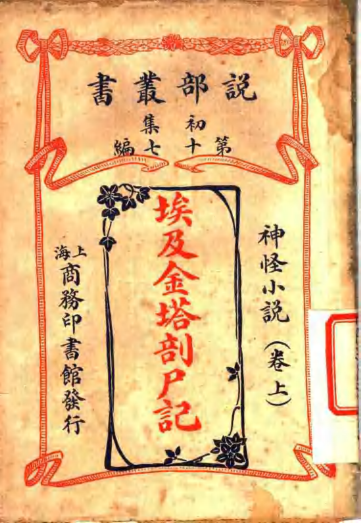 説部叢書
初集
第十七編
神怪小説（卷上）
埃及金塔剖尸記
上海商務印書館發行